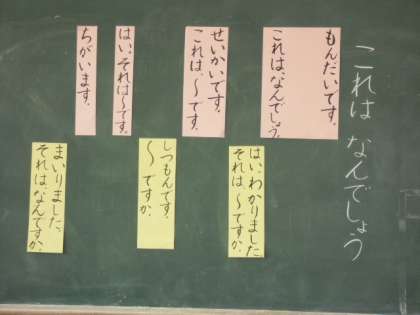 これは なんでしょう
もんだいです。
これは、なんでしょう。
せいかいです。
これは、～です。
はい。それは～です。
ちがいます。
はい、わかりました
それは、～ですか。
しつもんです。
～ ですか。
まいりました。
それは、なんですか。